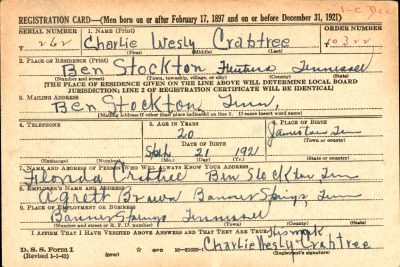 REGISTRATION CARD—(Men born on or after February 17, 1897 and on or before December 31, 1921)
SERIAL NUMBER 1. NAME (Print) ORDER NUMBER
262 Charlie Wesly Crabtree
(First) (Middle) (Last)
2. PLACE OF RESIDENCE (Print)
Ben Stockton Fentress Tennessee
(Number and street) (Town, township, village, or city) (County) (State)
[THE PLACE OF RESIDENCE GIVEN ON THE LINE ABOVE WILL DETERMINE LOCAL BOARD
JURISDICTION; LINE 2 OF REGISTRATION CERTIFICATE WILL BE IDENTICAL]
3. MAILING ADDRESS
Ben Stockton Tenn,
[Mailing address if other than place indicated on line 2. If same insert word same]
4. TELEPHONE 5. AGE IN YEARS 6. PLACE OF BIRTH
20 Jamestown Tenn
DATE OF BIRTH (Town or county)
21 1921
(Exchange) (Number) (Mo.) (Day) (Yr.) (State or country)
7. NAME AND ADDRESS OF PERSON WHO WILL ALWAYS KNOW YOUR ADDRESS
Crabtree Ben Stockton Tenn
8. EMPLOYER'S NAME AND ADDRESS
Brown Banner Springs Tenn
9. PLACE OF EMPLOYMENT OR BUSINESS
Banner Springs Tennessee
(Number and street or R. F. D. number) (Town) (County) (State)
I AFFIRM THAT I HAVE VERIFIED ABOVE ANSWERS AND THAT THEY ARE TRUE.
his mark
D. S. S. Form 1 GPO Charlie Wesly Crabtree
(Revised 1-1-42) (over) (Registrant's signature)